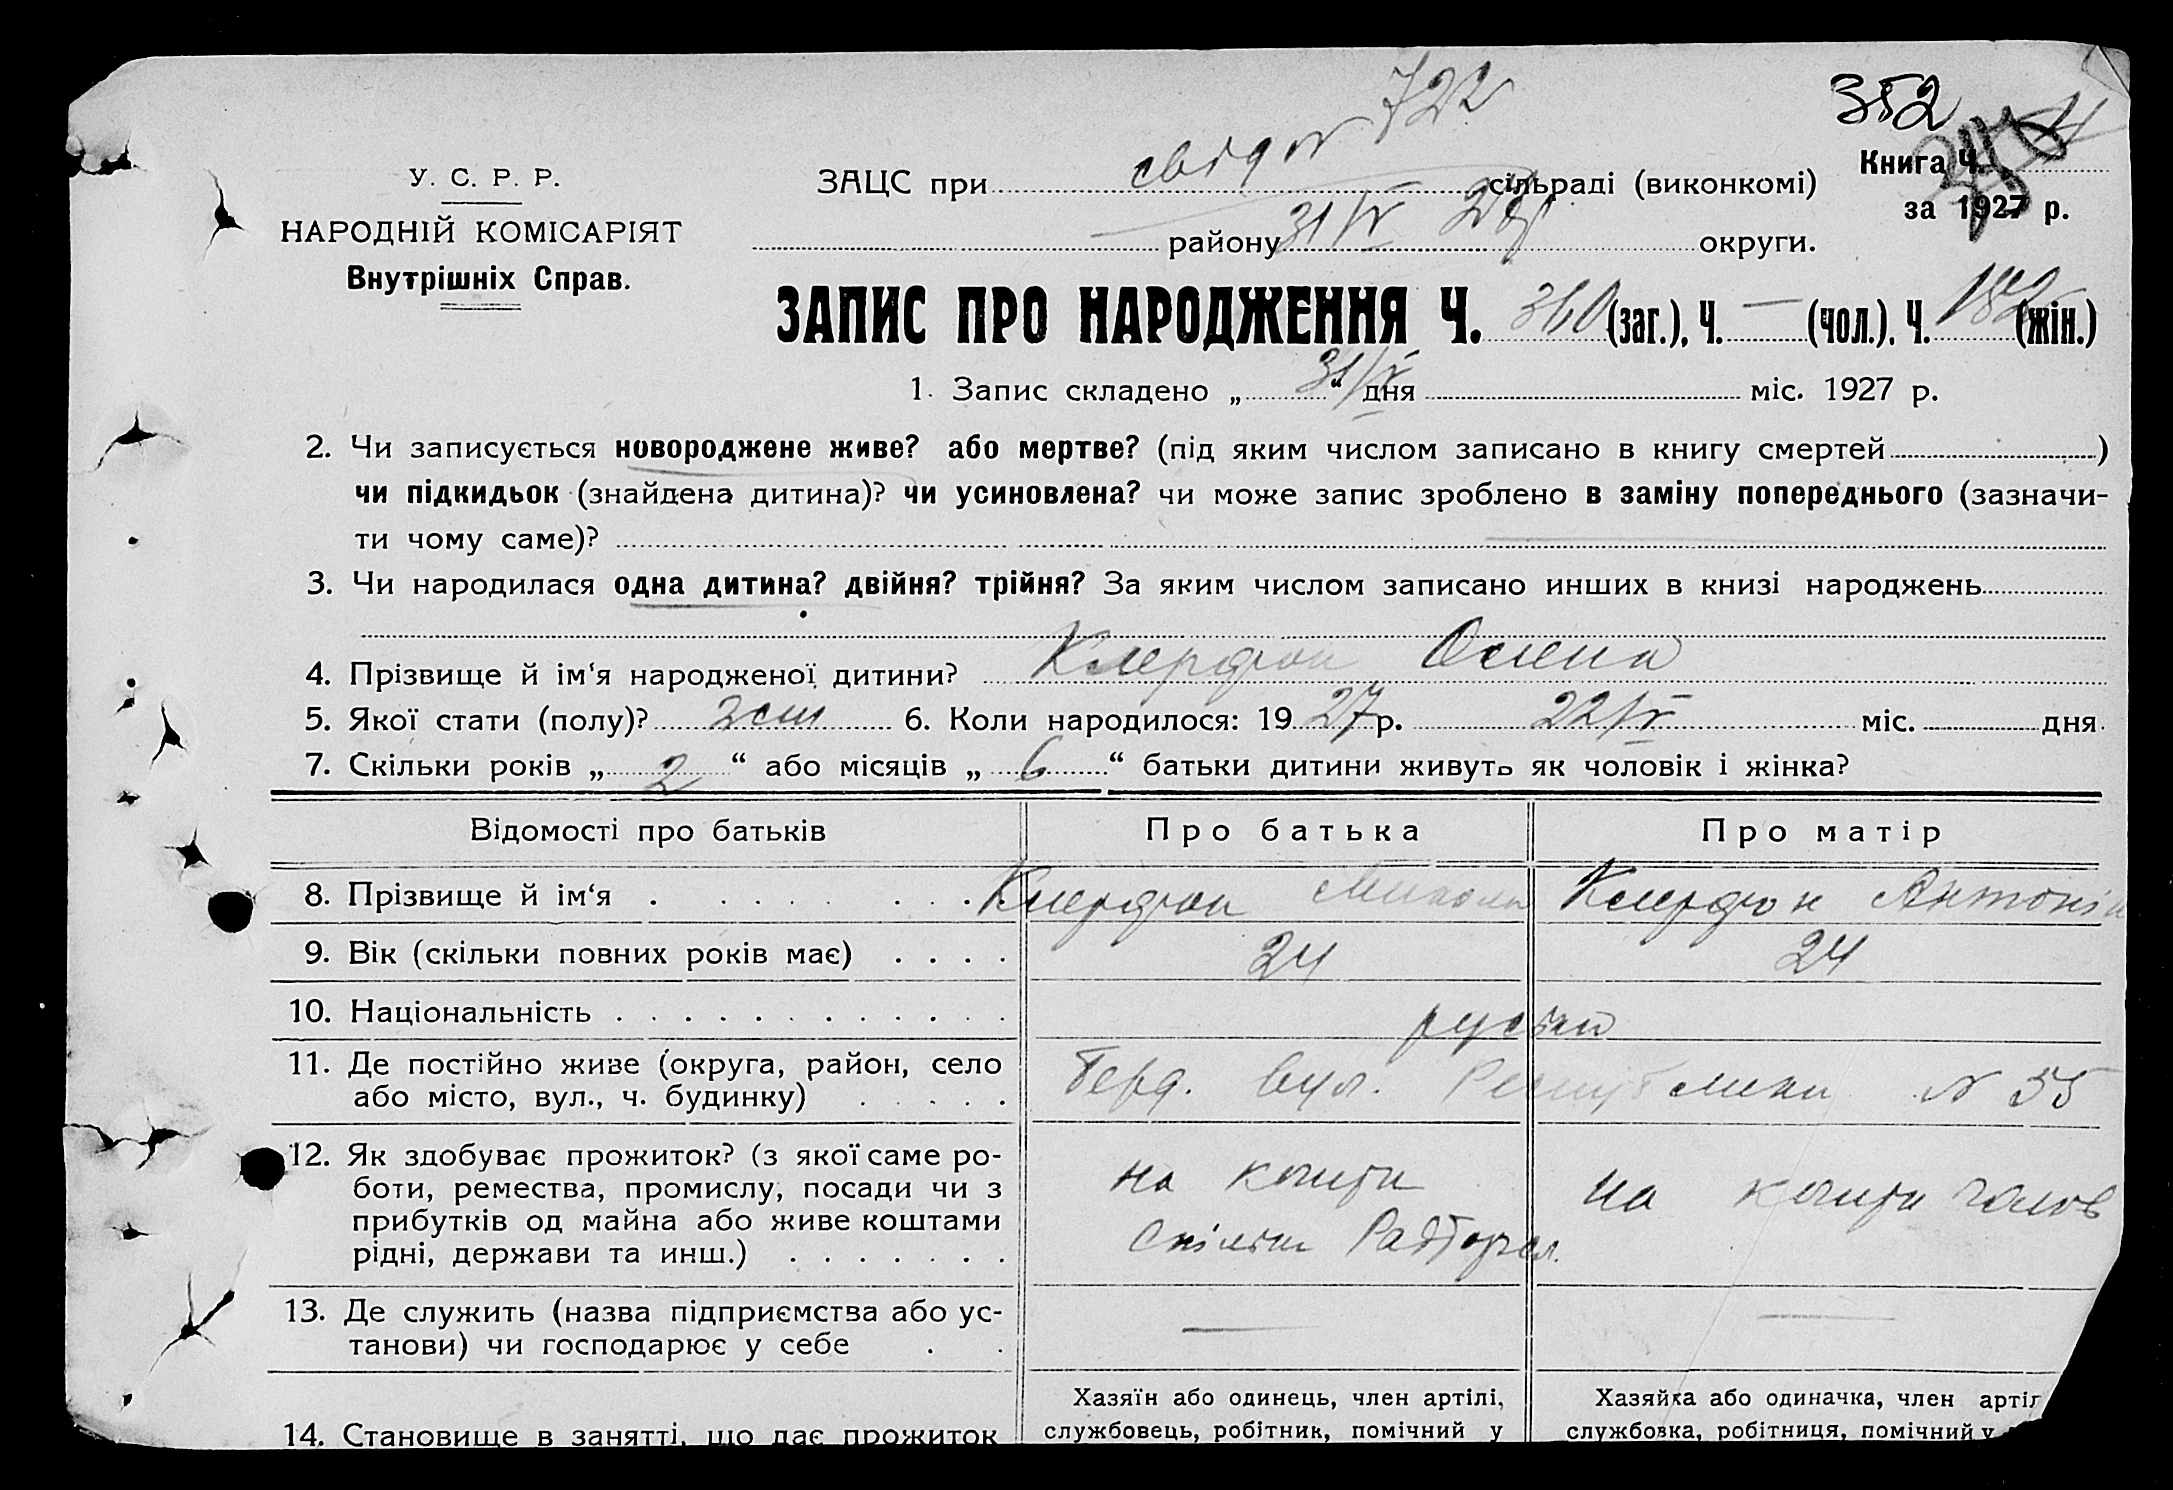 722
352
У. С. Р. Р.
НАРОДНІЙ КОМІСАРІЯТ
Внутрішніх Справ.
ЗАЦС при сільраді (виконкомі)
Книга Ч.
за 1927 р.
району 31/V 27 округи.
ЗАПИС ПРО НАРОДЖЕННЯ Ч. 360 (заг.), Ч. — (чол.), Ч. 182 (жін.)
1. Запис складено „ 31/V “ дня міс. 1927 р.
2. Чи записується новороджене живе? або мертве? (під яким числом записано в книгу смертей )
чи підкидьок (знайдена дитина)? чи усиновлена? чи може запис зроблено в заміну попереднього (зазначи-
ти чому саме)?
3. Чи народилася одна дитина? двійня? трійня? За яким числом записано инших в книзі народжень
4. Прізвище й ім‘я народженої дитини? Олена
5. Якої стати (полу)? жін 6. Коли народилося: 1927 р. 22/V міс. дня
7. Скільки років „ 2 “ або місяців „ 6 “ батьки дитини живуть як чоловік і жінка?
Відомості про батьків Про батька Про матір
8. Прізвище й ім‘я Микола Антоні
9. Вік (скільки повних років має) 24 24
10. Національність руські
11. Де постійно живе (округа, район, село
або місто, вул., ч. будинку) Берд. вул. Республики N 55
12. Як здобуває прожиток? (з якої саме ро-
боти, ремества, промислу, посади чи з
прибутків од майна або живе коштами
рідні, держави та инш.)
на кошти
спілки
на кошти чолов
13. Де служить (назва підприємства або ус-
танови) чи господарює у себе — —
14. Становище в занятті, що дає прожиток
Хазяїн або одинець, член артілі,
службовець, робітник, помічний у
Хазяйка або одиначка, член артіл
службовка, робітниця, помічний у